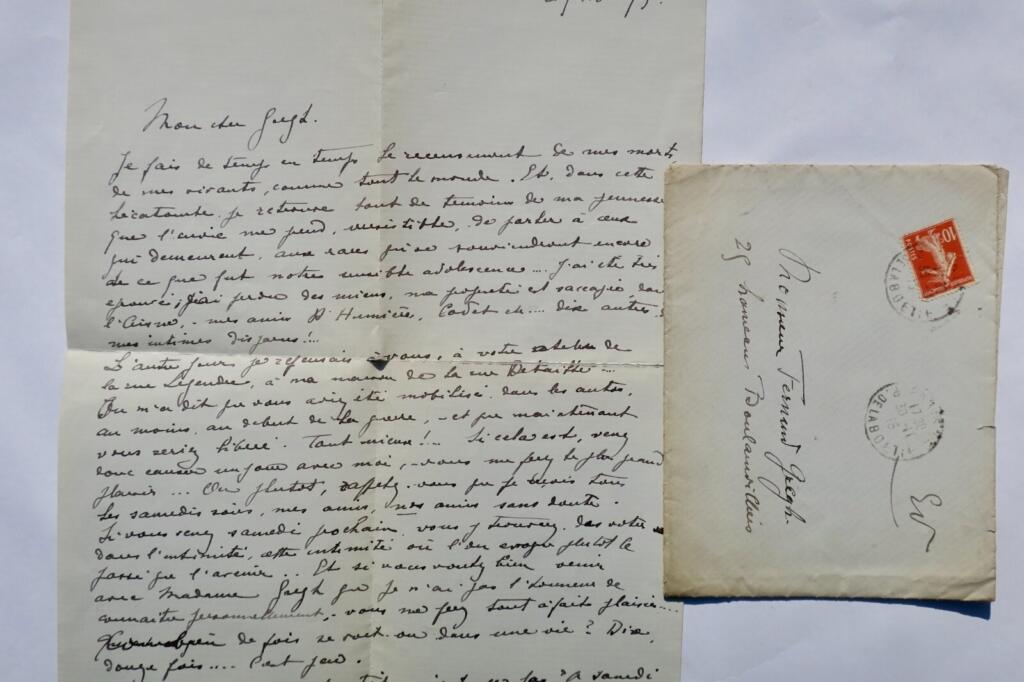 Mon cher Gregh.
Je fais de temps en temps le recensement de mes morts,
de mes vivants, comme tout le monde. Et, dans cette
hécatombe, je retrouve tant de témoins de ma jeunesse
que l'envie me prend, irrésistible, de parler à ceux
qui demeurent, aux rares qui se souviendront encore
de ce que fut notre sensible adolescence... J'ai été très
éprouvé ; j'ai perdu des miens, ma propriété est saccagée dans
l'Aisne, - mes amis d'Humières, Cadet etc.... dix autres,
mes intimes disparus!...
L'autre jour je repensais à vous, à votre atelier de
la rue Legendre, à ma maison de la rue Detaille...
On m'a dit que vous aviez été mobilisé dans les autos,
au moins au début de la guerre, - et que maintenant
vous seriez libéré. Tant mieux!... Si cela est, venez
donc causer un jour avec moi, - vous me ferez le plus grand
plaisir... Ou plutôt, rappelez-vous que je reçois tous
les samedis soirs, mes amis, nos amis sans doute.
Si vous venez samedi prochain vous y trouverez
dans l'intimité, cette intimité où l'on évoque plutôt le
passé que l'avenir... Et si vous voulez bien venir
avec Madame Gregh que je n'ai pas l'honneur de
connaître personnellement, vous me ferez tout à fait plaisir...
de fois se voit-on dans une vie? Dix,
douze fois.... C'est peu.
"A samedi
Monsieur Fernand Gregh.
25 hameau Boulainvilliers
EV
10